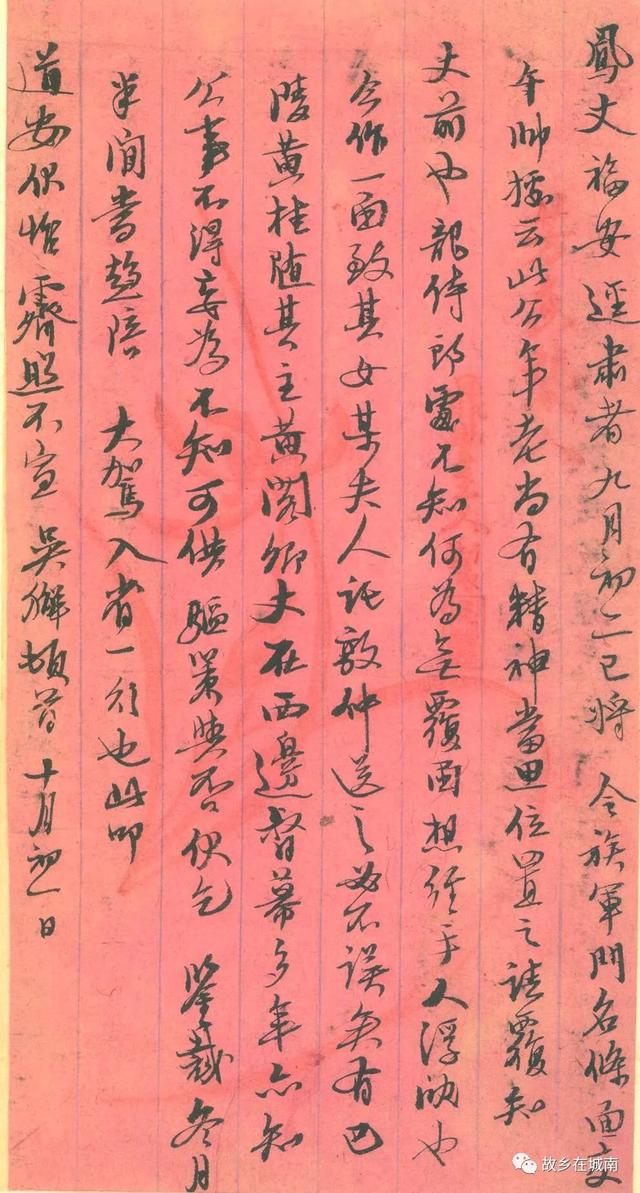 鳳丈福安逕肅者九月初二已將 令族軍門名條面交
午帥據云此公年老尚有精神當思位置之請覆知
丈前也龍侍郎處不知何為無覆函想經手人浮沈也
今作一函致其女某夫人託敦仲送之必不誤矣有巴
陵黃桂隨其主黃閣卿大在西邊督幕多年亦知
公事不得妄為不知可供 驅策與否伏乞 鑒裁冬月
半間當趨陪 大駕入省一行也此叩
道安伏惟霽照不宣 吳獬頓首 十月初一日
故乡在城南